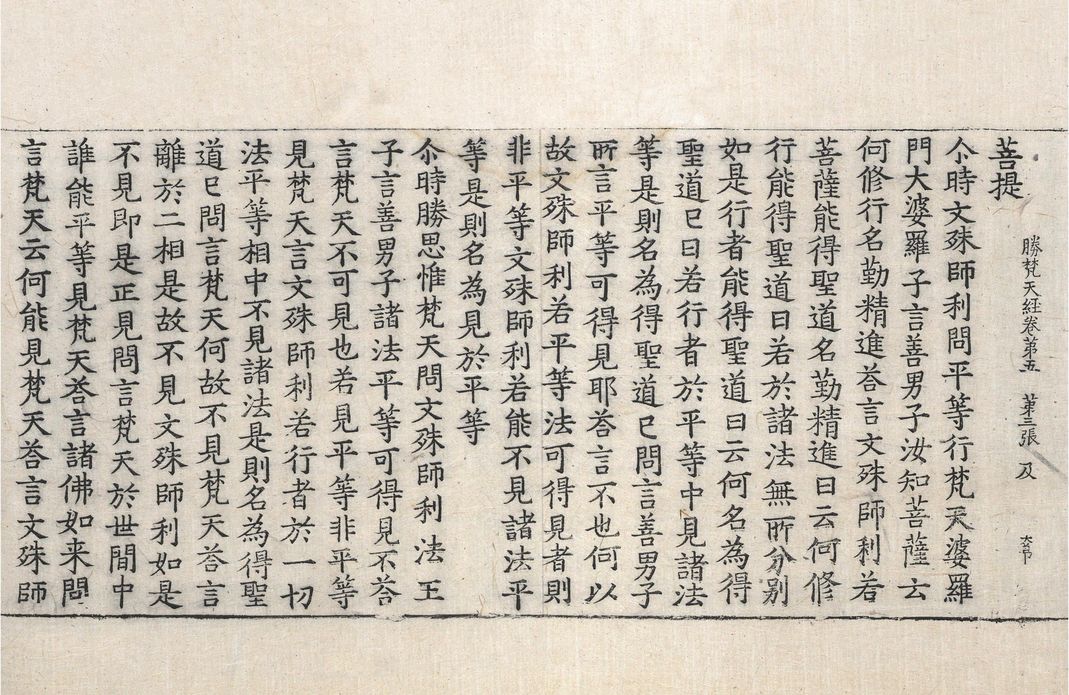 勝梵天經卷第五 第三張 及
菩提
尒時文殊師利問平等行梵天婆羅
門大婆羅子言善男子汝知菩薩云
何修行名勤精進荅言文殊師利若
菩薩能得聖道名勤精進曰云何修
行能得聖道曰若於諸法無所分别
如是行者能得聖道曰云何名為得
聖道已曰若行者於平等中見諸法
等是則名為得聖道已問言善男子
所言平等可得見耶荅言不也何以
故文殊師利若平等法可得見者則
非平等文殊師利若能不見諸法平
等是則名為見於平等
尒時勝思惟梵天問文殊師利法王
子言善男子諸法平等可得見不荅
言梵天不可見也若見平等非平等
見梵天言文殊師利若行者於一切
法平等相中不見諸法是則名為得聖
道已問言梵天何故不見梵天荅言
離於二相是故不見文殊師利如是
不見即是正見問言梵天於世間中
誰能平等見梵天荅言諸佛如来問
言梵天云何能見梵天荅言文殊師